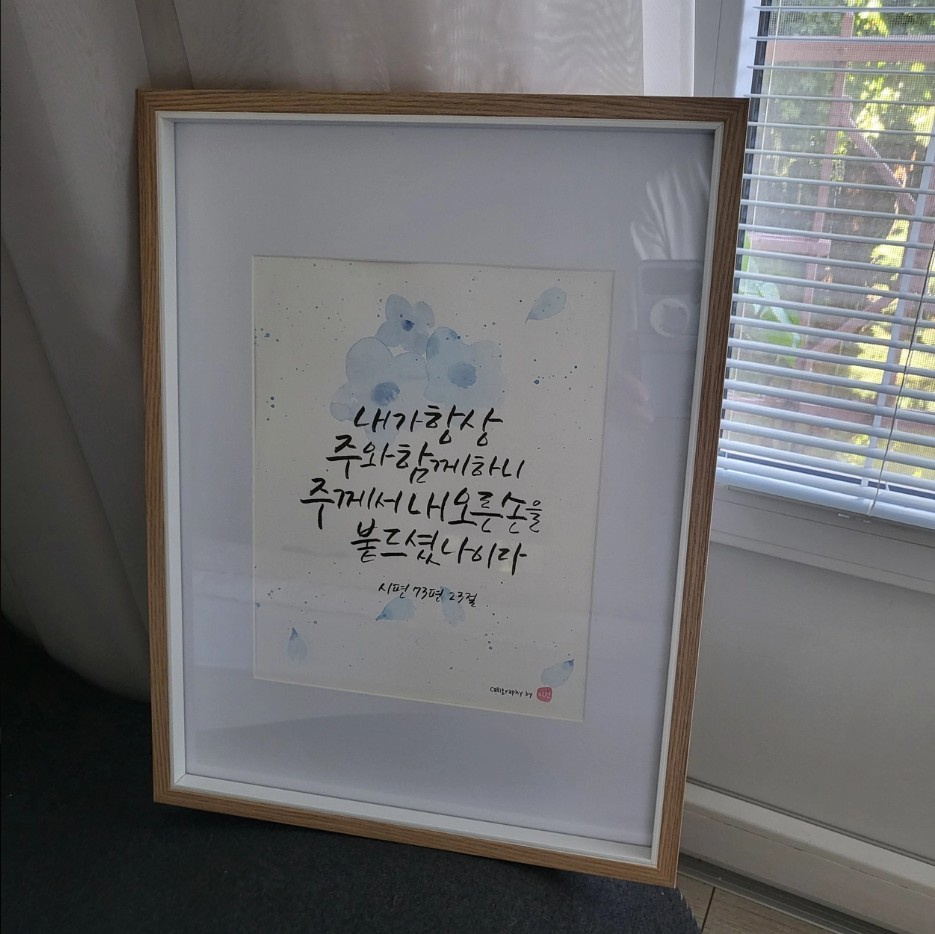 내가 항상
주와 함께 하니
주께서 내 오른손을
붙드셨나이다
시편 73편 23절
Calligraphy by